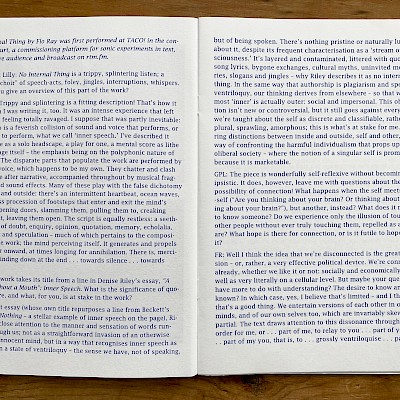 nal Thing by Flo Ray was first performed at TACO! in the con-
urt, a commissioning platform for sonic experiments in text,
e audience and broadcast on rtm.fm.
Lilly: No Internal Thing is a trippy, splintering listen; a
choir' of speech-acts, foley, jingles, interruptions, whispers.
ou give an overview of this part of the work?
rippy and splintering is a fitting description! That's how it
I was writing it, too. It was an intense experience that left
feeling totally ravaged. I suppose that was partly inevitable:
o is a feverish collision of sound and voice that performs, or
to perform, what we call 'inner speech.' I've described it
e as a solo headscape, a play for one, a mental score as lithe
uage itself – the emphasis being on the polyphonic nature of
The disparate parts that populate the work are performed by
voice, which happens to be my own. They chatter and clash
e after narrative, accompanied throughout by musical frag-
d sound effects. Many of these play with the false dichotomy
and outside: there's an intermittent heartbeat, ocean waves,
s procession of footsteps that enter and exit the mind's
pening doors, slamming them, pulling them to, creaking
t, leaving them open. The script is equally restless: a seeth-
of doubt, enquiry, opinion, quotation, memory, echolalia,
and speculation – much of which pertains to the composi-
e work; the mind perceiving itself. It generates and propels
ur onward, at times longing for annihilation. There is, merci-
inding down at the end . . . towards silence . . . towards
work takes its title from a line in Denise Riley's essay, "A
thout a Mouth': Inner Speech. What is the significance of quo-
re, and what, for you, is at stake in the work?
t essay (whose own title repurposes a line from Beckett's
Nothing – a stellar example of inner speech on the page), Ri-
close attention to the manner and sensation of words run-
ugh us; not as a straightforward invasion of an otherwise
nnocent mind, but in a way that recognises inner speech as
a state of ventriloquy – the sense we have, not of speaking,
but of being spoken. There's nothing pristine or naturally lu
about it, despite its frequent characterisation as a 'stream o
sciousness.' It's layered and contaminated, littered with quo
song lyrics, bygone exchanges, cultural myths, uninvited me
ries, slogans and jingles – why Riley describes it as no intern
thing. In the same way that authorship is plagiarism and spe
ventriloquy, our thinking derives from elsewhere – so that w
most 'inner' is actually outer: social and impersonal. This ob
tion isn't new or controversial, but it still goes against every
we're taught about the self as discrete and classifiable, rathe
plural, sprawling, amorphous; this is what's at stake for me.
ring distinctions between inside and outside, self and other,
way of confronting the harmful individualism that props up
oliberal society – where the notion of a singular self is prom
because it is marketable.
GPL: The piece is wonderfully self-reflexive without becomin
ipsistic. It does, however, leave me with questions about the
possibility of connection! What happens when the self meets
-self ("Are you thinking about your brain? Or thinking about
ing about your brain?"), but another, instead? What does it
to know someone? Do we experience only the illusion of tou
other people without ever truly touching them, repelled as a
are? What hope is there for connection, or is it futile to hope
it?
FR: Well I think the idea that we're disconnected is the great
sion – or, rather, a very effective political device. We're conn
already, whether we like it or not: socially and economically
well as very literally on a cellular level. But maybe your ques
have more to do with understanding? The desire to know an
known? In which case, yes, I believe that's limited – and I th
that's a good thing. We entertain versions of each other in o
minds, and of our own selves too, which are invariably skew
partial. The text draws attention to this dissonance through
order for me, or . . . part of me, to relay to you . . . part of y
. . part of my you, that is, to . . . grossly ventriloquise . . . par